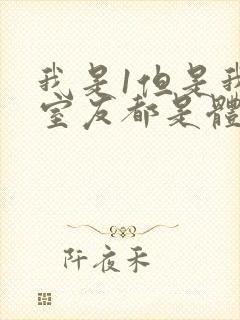 我是1但是我
室友都是體
阡夜禾